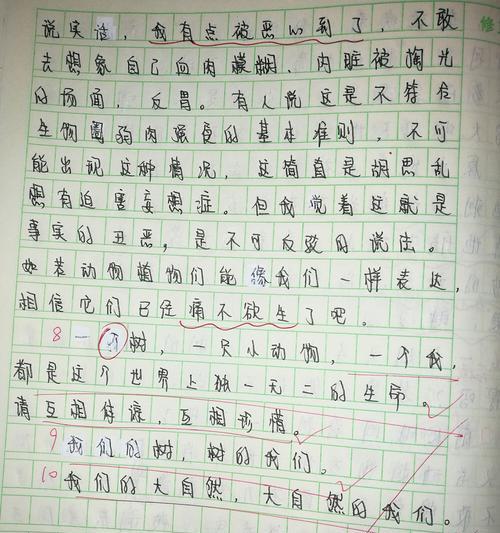 说实话，我有点被恶心到了，不敢
去想象自己血肉模糊，内脏被掏光
的场面，反胃。有人说这是不符合
生物圈弱肉强食的基本准则，不可
能出现这种情况，这简直是胡思乱
想有迫害妄想症。但我觉着这就是
事实的丑恶，是不可反驳的说法。
如若动物植物们能像我们一样表达，
相信它们已经痛不欲生了吧。
8 一个树，一只小动物，一个我，
都是这个世界上独一无二的生命。
请互相体谅，互相珍惜。
9 我们的树，树的我们。
10 我们的大自然，大自然的我们。